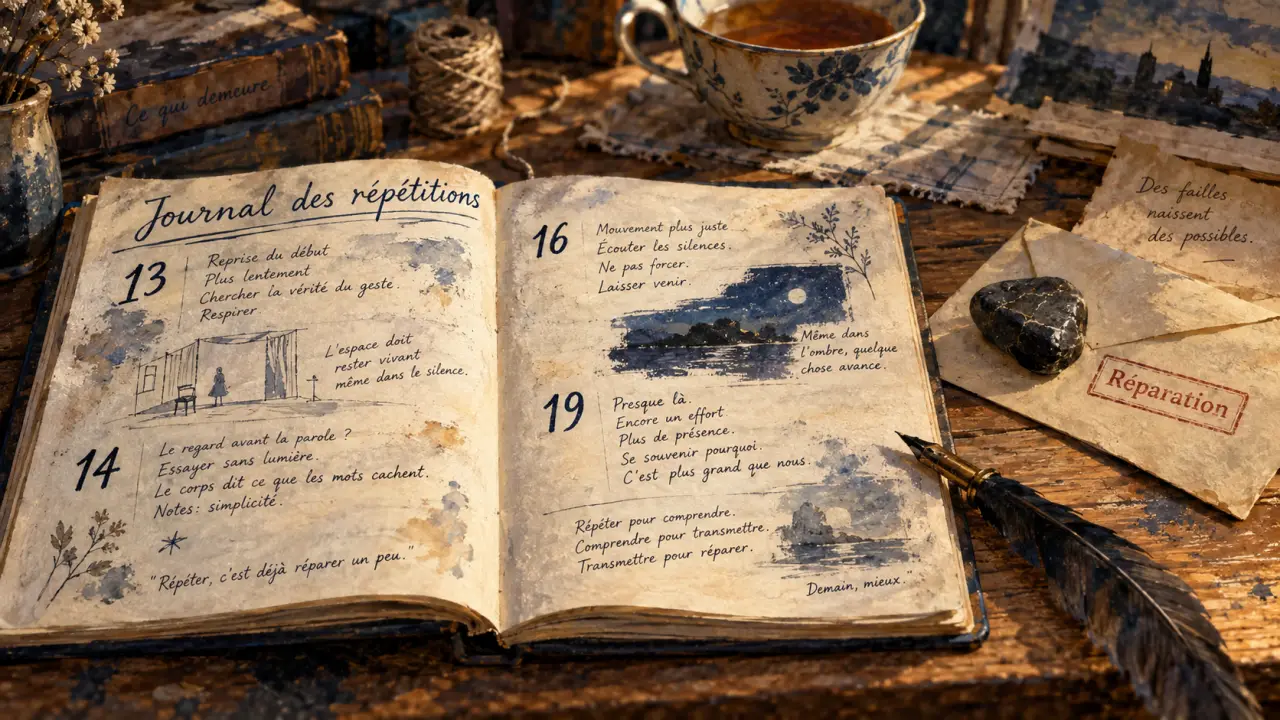 Ce qui demeure
Journal des répétitions
13
Reprise du début
Plus lentement
Chercher la vérité du geste.
Respirer
L'espace doit
rester vivant
même dans le silence.
14
Le regard avant la parole ?
Essayer sans lumière.
Le corps dit ce que les mots cachent.
Notes: simplicité.
"Répéter, c'est déjà réparer un peu."
16
Mouvement plus juste
Écouter les silences.
Ne pas forcer.
Laisser venir.
Même dans
l'ombre, quelque
chose avance.
19
Presque là.
Encore un effort
Plus de présence.
Se souvenir pourquoi.
C'est plus grand que nous.
Répéter pour comprendre.
Comprendre pour transmettre.
Transmettre pour réparer.
Demain, mieux "
Des failles
naissent
des possibles.
Réparation